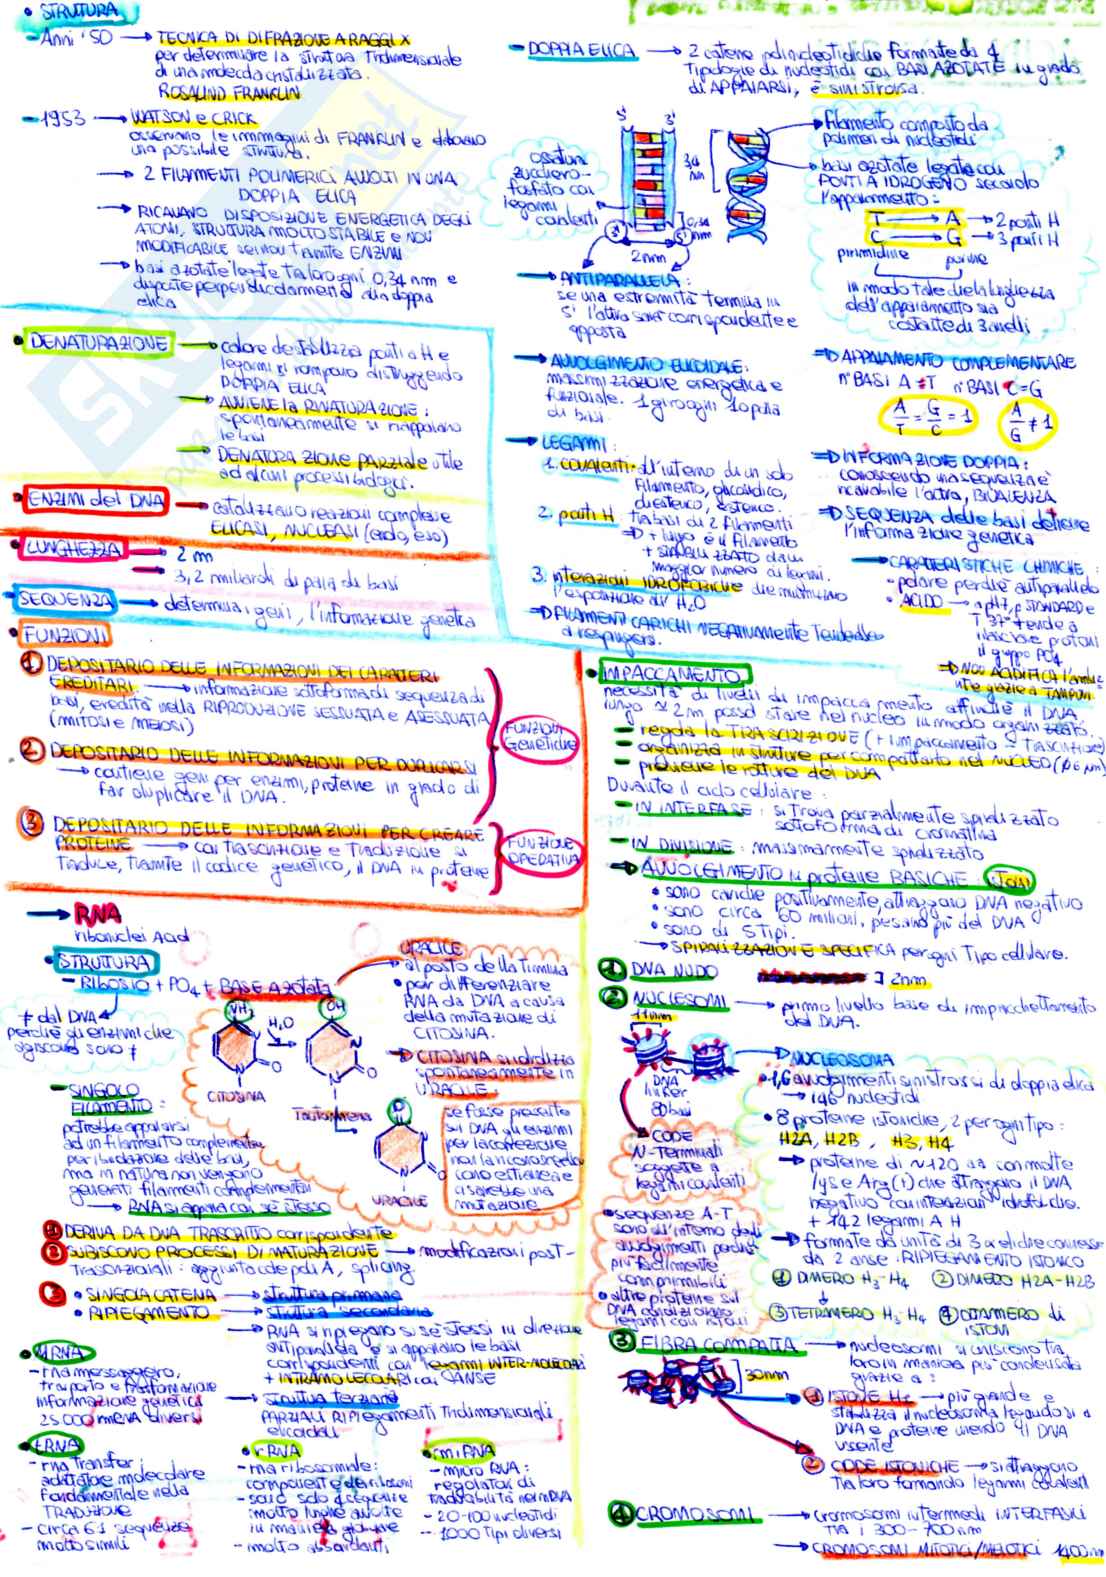 • STRUTTURA
- Anni '50 → TECNICA DI DIFRAZIONE A RAGGI X
per determinare la struttura tridimensionale
di una molecola cristallizzata.
ROSALIND FRANKLIN
- 1953 → WATSON e CRICK
osservano le immagini di FRANKLIN e
una possibile struttura.
→ 2 FILAMENTI POLIMERICI AVVOLTI IN UNA
DOPPIA ELICA
→ RICAVANO DISPOSIZIONE ENERGETICA DEGLI
ATOMI, STRUTTURA MOLTO STABILE e NON
MODIFICABILE se non tramite ENZIMI
→ basi azotate legate tra loro ogni 0,34 nm e
disposte perpendicolarmente alla doppia
elica
• DENATURAZIONE → calore destabilizza ponti a H e
legami si rompono distruggendo
DOPPIA ELICA
→ AVVIENE la RINATURAZIONE:
spontaneamente si riappaiano
le basi
→ DENATURAZIONE PARZIALE utile
ad alcuni processi biologici.
• ENZIMI del DNA → catalizzano reazioni complesse
ELICASI, NUCLEASI (endo, eso)
• LUNGHEZZA → 2 m
→ 3,2 miliardi di paia di basi
• SEQUENZA → determina i geni, l'informazione genetica
• FUNZIONI
1 DEPOSITARIO DELLE INFORMAZIONI DEI CARATTERI
EREDITARI. → informazione sottoforma di sequenza di
basi, eredità nella RIPRODUZIONE SESSUATA e ASESSUATA
(MITOSI e MEIOSI)
2 DEPOSITARIO DELLE INFORMAZIONI PER DUPLICARSI
→ contiene geni per enzimi, proteine in grado di
far duplicare il DNA.
FUNZIONI
Genetiche
3 DEPOSITARIO DELLE INFORMAZIONI PER CREARE
PROTEINE → con trascrizione e traduzione si
traduce, tramite il codice genetico, il DNA in proteine
FUNZIONE
OPERATIVA
- DOPPIA ELICA → 2 catene polinucleotidiche formate da 4
tipologie di nucleotidi con BASI AZOTATE in grado
di APPAIARSI, è sinistrorsa.
ossatura
zucchero-
fosfato con
legami
covalenti
5' 3'
3,4
nm
0,34
nm
3' 5'
2 nm
filamento composto da
polimeri di nucleotidi
basi azotate legate con
PONTI A IDROGENO secondo
l'appaiamento:
T → A → 2 ponti H
C → G → 3 ponti H
pirimidine purine
in modo tale che la larghezza
dell'appaiamento sia
costante di 3 anelli
→ ANTIPARALLELA:
se una estremità termina in
5' l'altra sarà corrispondente e
opposta
→ AVVOLGIMENTO ELICOIDALE:
massimizzazione energetica e
funzionale. 1 giro ogni 10 paia
di basi.
→ LEGAMI:
1. COVALENTI: all'interno di un solo
filamento, glicosidico,
diestereo, estereo.
2. ponti H tra basi di 2 filamenti
⇒ + lungo è il filamento
+ stabilizzato da un
maggior numero di legami.
3. interazioni IDROFOBICHE che minimizzano
l'esposizione all'H₂O
⇒ FILAMENTI CARICHI NEGATIVAMENTE tendendo
a respingersi.
⇒ APPAIAMENTO COMPLEMENTARE
n° BASI A = T n° BASI C = G
A/T = G/C = 1 A/G ≠ 1
⇒ INFORMAZIONE DOPPIA:
conoscendo una sequenza è
ricavabile l'altra, BIVALENZA
⇒ SEQUENZA delle basi definisce
l'informazione genetica
→ CARATTERISTICHE CHIMICHE:
• polare perché antiparallelo
• ACIDO → a pH 7, p STANDARD e
T 37° tende a
rilasciare protoni
il gruppo PO₄
⇒ NON ACIDIFICA l'ambiente grazie a TAMPONI.
• IMPACCAMENTO
necessità di livelli di impaccamento affinché il DNA
lungo ≃ 2m possa stare nel nucleo in modo organizzato.
- regola la TRASCRIZIONE (+ impaccamento = - trascrizione)
- organizza in strutture per compattarlo nel NUCLEO (Ø 6 μm)
- previene le rotture del DNA
Durante il ciclo cellulare:
- IN INTERFASE: si trova parzialmente spiralizzato
sottoforma di cromatina
- IN DIVISIONE: massimamente spiralizzato
→ AVVOLGIMENTO in proteine BASICHE: ISTONI
• sono cariche positivamente, attraggono DNA negativo
• sono circa 60 milioni, pesano più del DNA
• sono di 5 tipi.
→ SPIRALIZZAZIONE È SPECIFICA per ogni tipo cellulare.
1 DNA NUDO ] 2nm
2 NUCLEOSOMI → primo livello base di impacchettamento
del DNA.
11nm
DNA
linker
80 basi
→ CODE
N-Terminali
soggette a
legami covalenti
• sequenze A-T
sono all'interno degli
avvolgimenti perché
più facilmente
comprimibili
• altre proteine sul
DNA condizionano
legami con istoni
⇒ NUCLEOSOMA
• 1,6 avvolgimenti sinistrorsi di doppia elica
→ 146 nucleotidi
• 8 proteine istoniche, 2 per ogni tipo:
H2A, H2B, H3, H4
→ proteine di ~120 aa con molte
lys e Arg (+) che attraggono il DNA
negativo con interazioni idrofobiche
+ 142 legami A H
→ formate da unità di 3 α eliche connesse
da 2 anse. RIPIEGAMENTO ISTONICO
1 DIMERO H₃-H₄ 2 DIMERO H2A-H2B
3 TETRAMERO H₃-H₄ 4 OTTAMERO di
ISTONI
3 FIBRA COMPATTA → nucleosomi si uniscono tra
loro in maniera più condensata
grazie a:
30nm
1 ISTONE H₁ → più grande e
stabilizza il nucleosoma legandosi a
DNA e proteine unendo il DNA
uscente
2 CODE ISTONICHE → si attraggono
tra loro formando legami covalenti
4 CROMOSOMI → cromosomi intermedi INTERFASICI
tra i 300-700nm
→ CROMOSOMI MITOTICI/MEIOTICI 1400nm
→ RNA
ribonucleic Acid
• STRUTTURA
- Ribosio + PO₄ + BASE AZOTATA
≠ dal DNA
perché gli enzimi che
agiscono sono ≠
- SINGOLO
FILAMENTO:
potrebbe appaiarsi
ad un filamento complementare
per ibridazione delle basi,
ma in natura non vengono
generati filamenti complementari
→ RNA si appaia con se stesso
NH₂ H₂O OH
N O
CITOSINA
Tautomeria
O
URACILE
URACILE
→ al posto della timina
• per differenziare
RNA da DNA a causa
della mutazione di
CITOSINA.
→ CITOSINA si idrolizza
spontaneamente in
URACILE
se fosse presente
sul DNA gli enzimi
per la correzione
non la riconoscerebbero
come estranea e
ci sarebbe una
mutazione
1 DERIVA DA DNA TRASCRITTO corrispondente
2 SUBISCONO PROCESSI DI MATURAZIONE → modificazioni post-
trascrizionali: aggiunta code poli A, splicing.
3 • SINGOLA CATENA → struttura primaria
• RIPIEGAMENTO → struttura secondaria
→ RNA si ripiegano su se stessi in direzione
antiparallela e si appaiano le basi
corrispondenti con legami INTER-MOLECOLARI
+ INTRAMOLECOLARI con ANSE
→ struttura terziaria
PARZIALI RIPIEGAMENTI tridimensionali
elicoidali
• mRNA
- rna messaggero,
trasporto e trasformazione
informazione genetica
25 000 mRNA diversi
• tRNA
- rna transfer,
adattatore molecolare
fondamentale nella
TRADUZIONE
- circa 61 sequenze
molto simili
• rRNA
- rna ribosomiale:
componente dei ribosomi
- sono solo 4 sequenze
molto lunghe avvolte
in maniera globulare
- molto abbondanti
• miRNA
- micro RNA:
regolatori di
traducibilità nei mRNA
- 20-100 nucleotidi
- 1000 tipi diversi